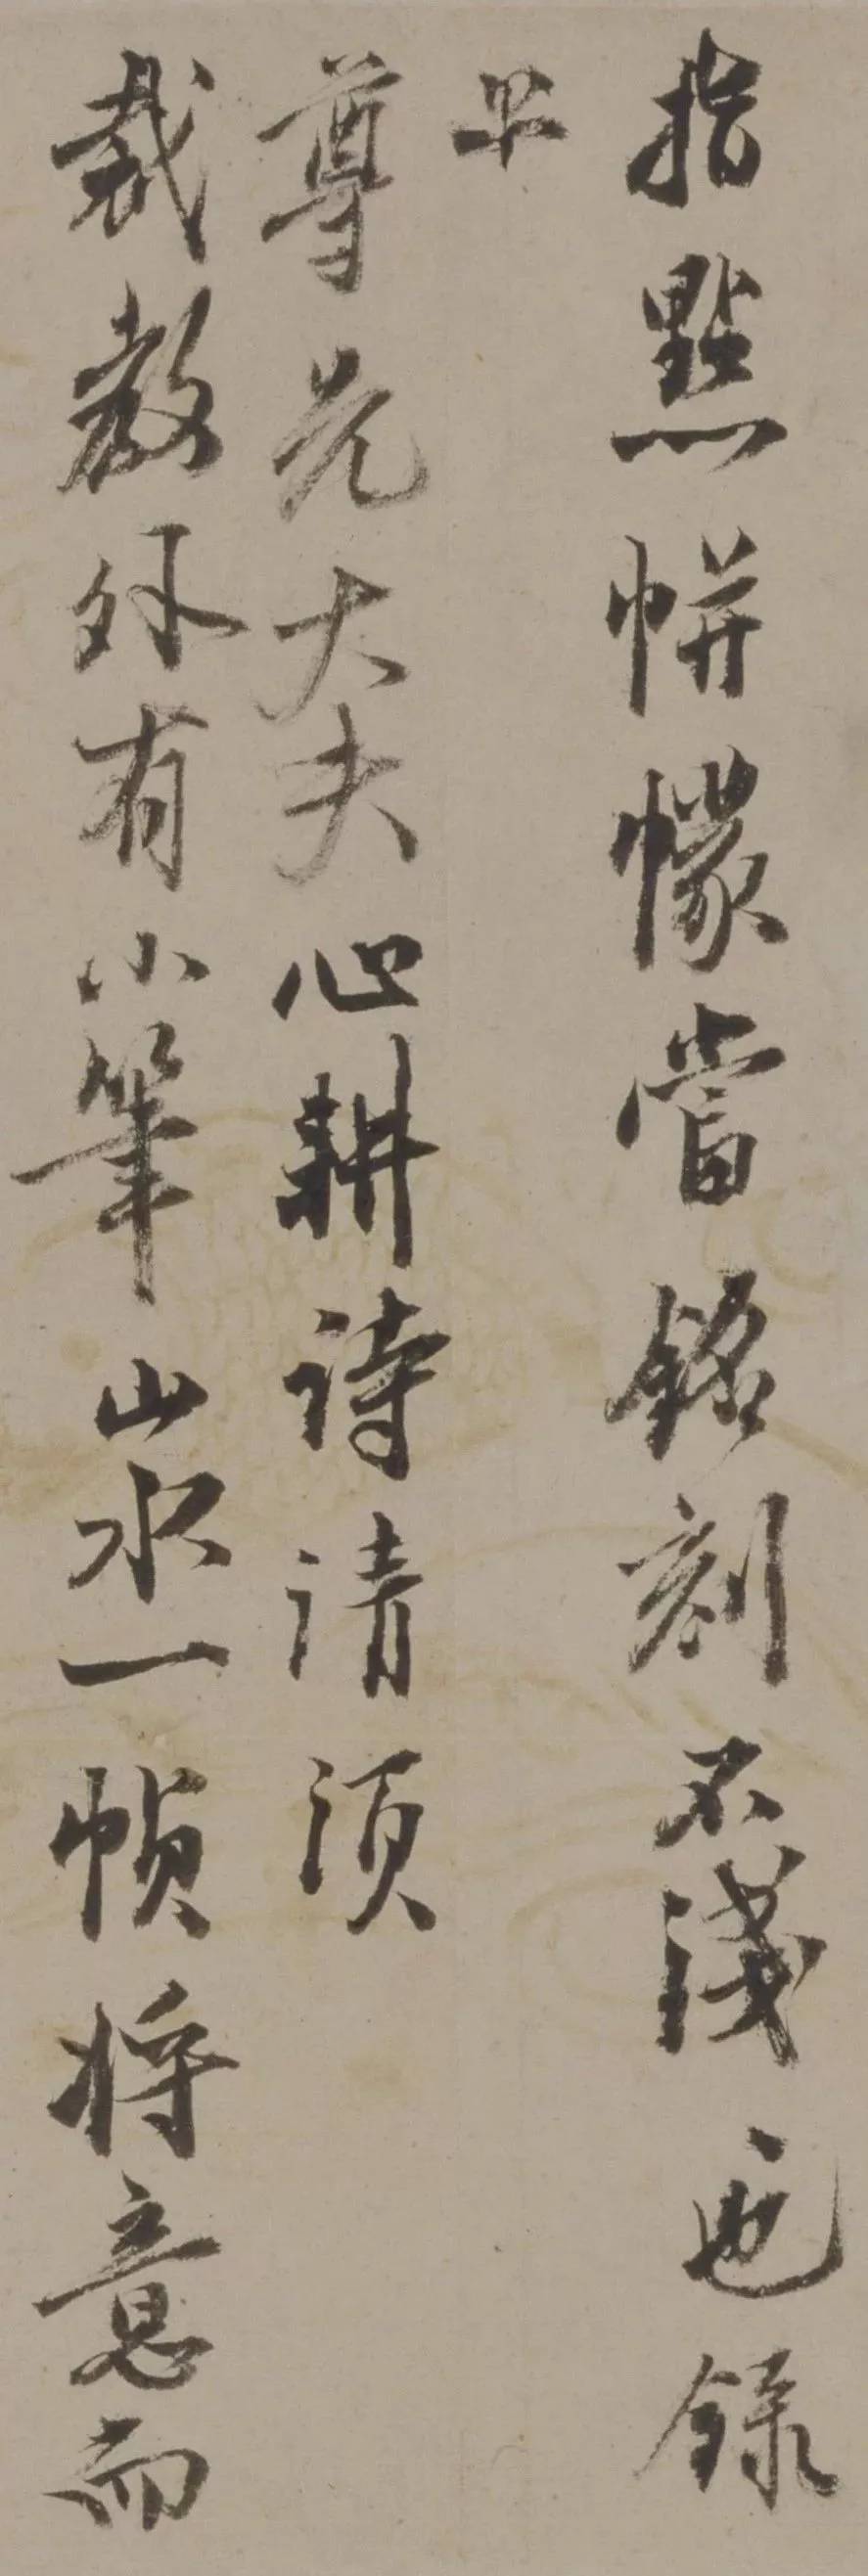 指點帡幪當銘刻不淺也錄
呈
尊先大夫心耕詩請須
裁教外有小筆山水一幀將意而